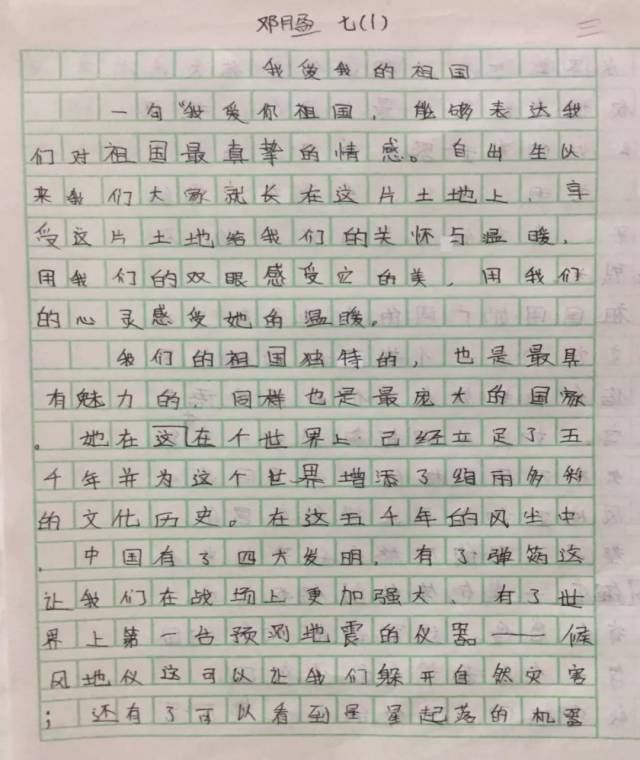 七(1)
我爱我的祖国
一句“我爱你祖国，能够表达我
们对祖国最真挚的情感。自出生以
来我们大家就长在这片土地上，享
受这片土地给我们的关怀与温暖，
用我们的双眼感受它的美，用我们
的心灵感受她的温暖。
我们的祖国独特的，也是最具
有魅力的，同样也是最庞大的国家
。她在这在个世界上已经立足了五
千年并为这个世界增添了绚丽多彩
的文化历史。在这五千年的风尘中
，中国有了四大发明，有了弹药这
让我们在战场上更加强大，有了世
界上第一台预测地震的仪器——候
风地仪这可以让我们躲开自然灾害
；还有了可以看到星星起落的机器